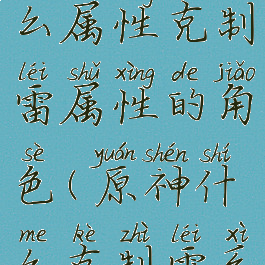 么属性克制
léi shǔ xìng de jiǎo
雷属性的角
sè yuán shén shí
色(原神什
me kè zhì léi xì
么克制雷系